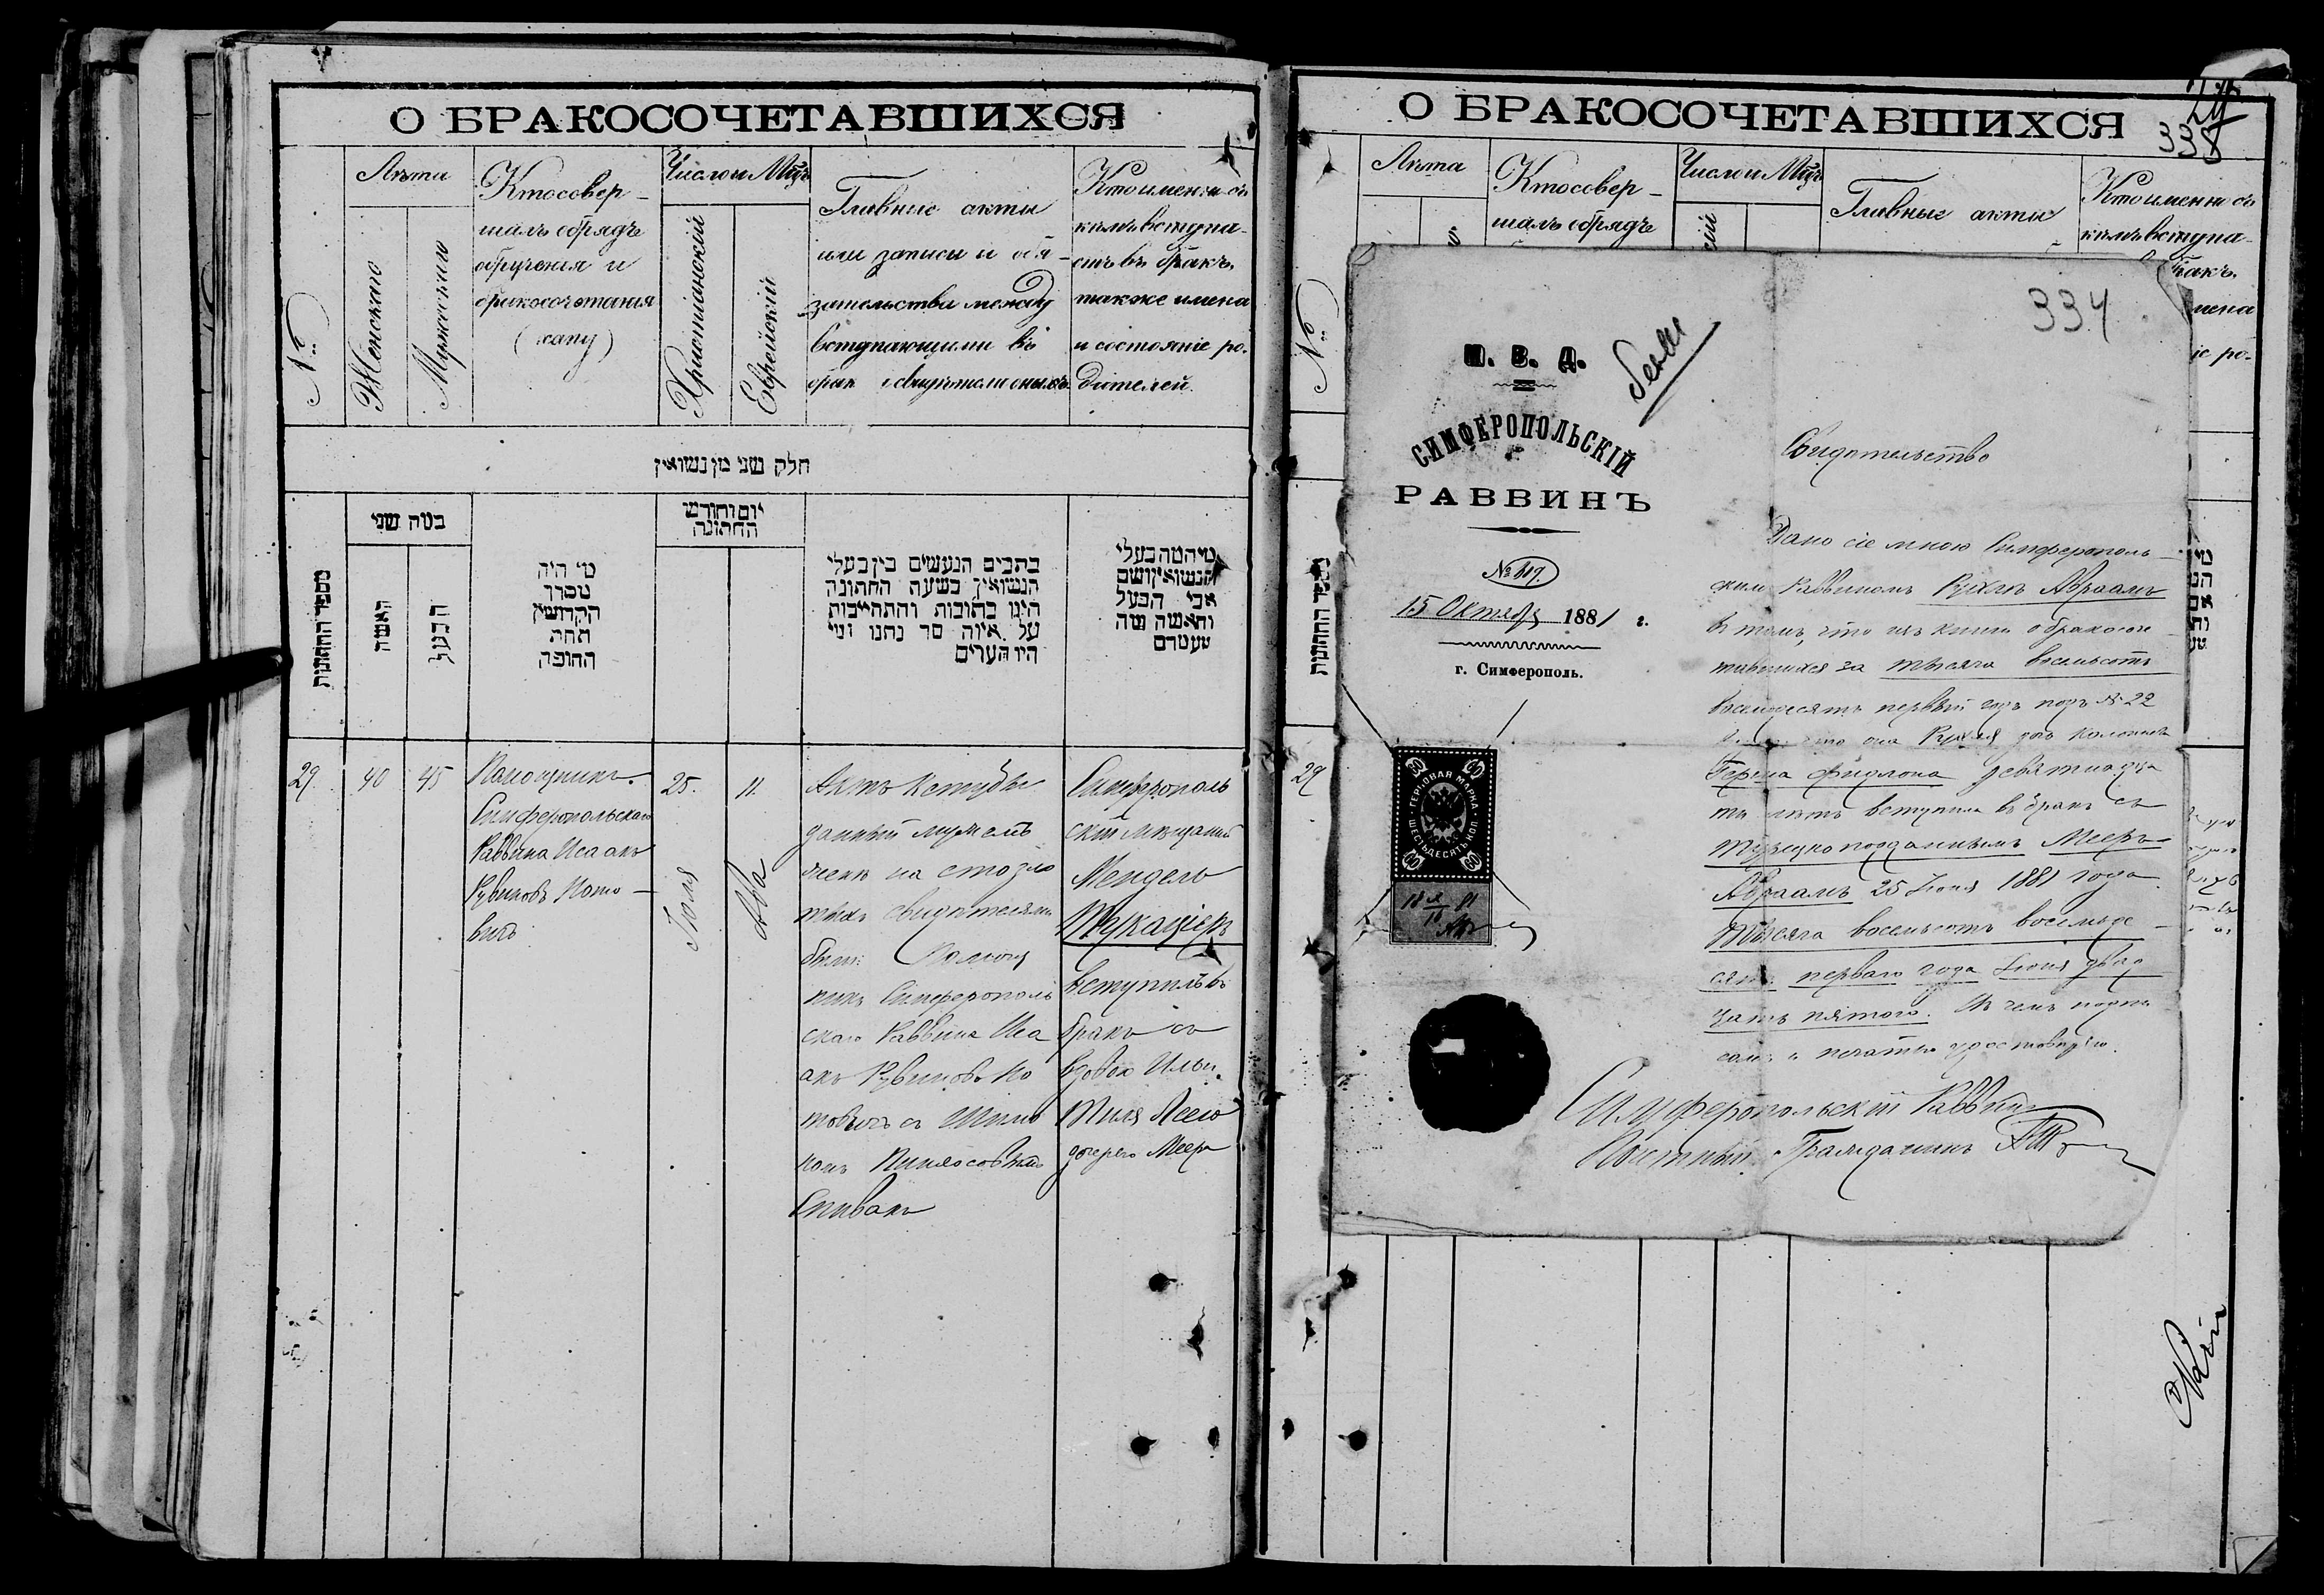 О БРАКОСОЧЕТАВШИХСЯ
№
Лѣта
Женскаго
Мужескаго
Кто совер-
шалъ обрядъ
обрученія и
бракосочетания
(хапу)
Число и Мѣц
Христіанскій
Еврейскій
Главные акты
или записи и обя-
зательства между
вступающими въ
брак и свидѣтели оныхъ
Кто именно съ
кѣмъ вступа-
етъ въ бракъ,
также имена
и состояніе ро-
дителей.
חלק שני מן נשואין
מספר החתונות
כמה שני
האשה
הבעל
מי היה
מסדר
הקדושין
תחת
החופה
יום וחודש
החתונה
כתבים הנעשים בין בעלי
הנשואין בשעת החתונה
היינו כתובות והתחייבות
על איזה סך נתנו ומי
היו העדים
מי המה בעלי
הנשואין ושם
אבי הבעל
והאשה ומה
מעמדם
29.
40
45
Помощникъ
Симферопольскаго
Раввина Исаакъ
Рувиновъ Кото-
вичъ
25.
Іюля
11.
Ава
Актъ Кетубы
данный мужемъ
женѣ на сто зло
тыхъ свидѣтелями
были: Помощ
никъ Симферополь
скаго Раввина Иса
акъ Рувиновъ Ко
товичъ и
Спивакъ
Симферополь
скій мѣщанинъ
Мендель
вступилъ въ
бракъ съ
вдовою
дочерью Меера
О БРАКОСОЧЕТАВШИХСЯ
338
№
Лѣта
Кто совер-
шалъ обрядъ
Число и Мѣц
Главные акты
Кто именно съ
кѣмъ вступа-
29
334
М. В. Д.
СИМФЕРОПОЛЬСКІЙ
РАВВИНЪ
15 Октября 1881 г.
г. Симферополь.
ГЕРБОВАЯ МАРКА
ШЕСТЬДЕСЯТЪ КОП.
60
Свидѣтельство
Дано сіе мною Симферополь-
скимъ Раввиномъ Рухлѣ Абраамъ
въ томъ, что изъ книги о бракосоче
тавшихся за тысяча восемьсотъ
восемьдесятъ первый годъ подъ № 22
что она Рухля
девятнадца
ти лѣтъ вступила въ бракъ съ
Турецкоподданнымъ Мееръ
Абраамъ 25 Іюня 1881 года
Тысяча восемьсотъ восемьде-
сятъ перваго года Іюня двад
цать пятого. Въ чемъ подпи
сомъ и печатью удостовѣряю.
Симферопольскій Раввинъ
Почетный Гражданинъ